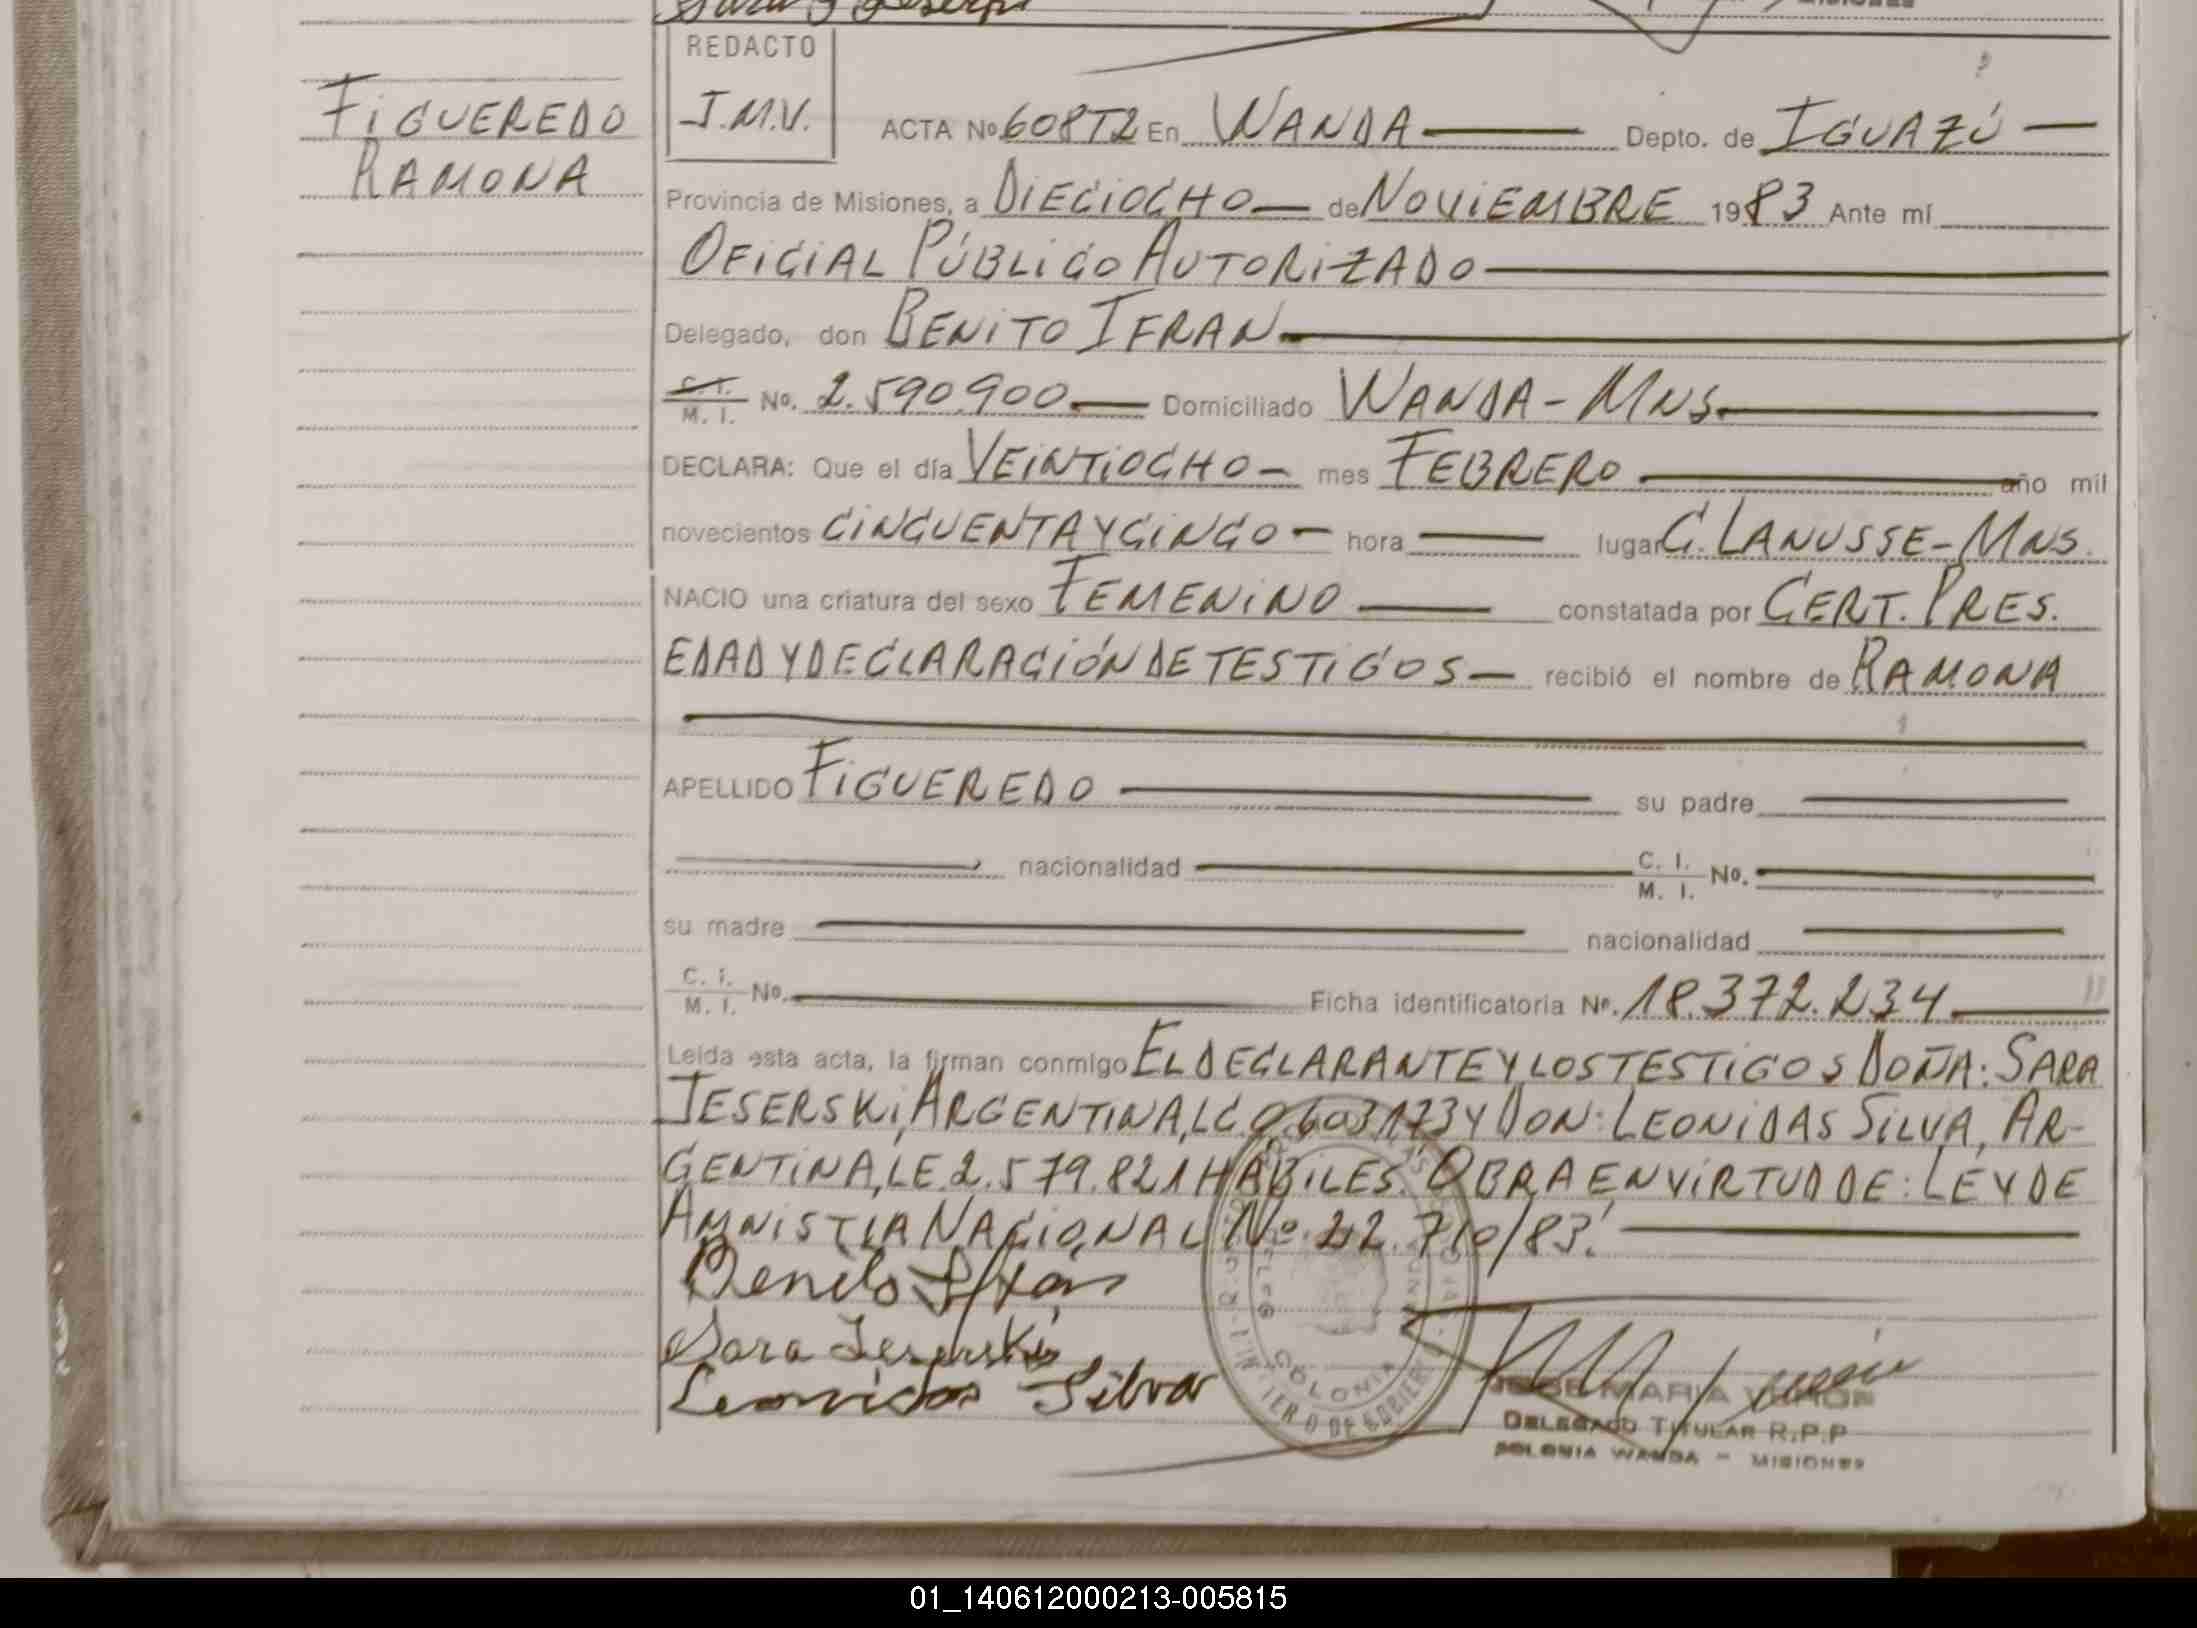 REDACTO
FIGUEREDO
RAMONA
J.M.V.
ACTA No 608T2 En WANDA Depto. de IGUAZÚ
Provincia de Misiones, a DIECIOCHO de NOVIEMBRE 1983 Ante mí
OFICIAL PÚBLICO AUTORIZADO
Delegado, don BENITO IFRAN
C. I. / M. I. No. 2.590.900 Domiciliado WANDA - MNS
DECLARA: Que el día VEINTIOCHO mes FEBRERO año mil
novecientos CINCUENTA Y CINCO hora lugar C. LANUSSE - MNS.
NACIO una criatura del sexo FEMENINO constatada por CERT. PRES.
EDAD Y DECLARACIÓN DE TESTIGOS recibió el nombre de RAMONA
APELLIDO FIGUEREDO su padre
nacionalidad C. I. / M. I. No.
su madre nacionalidad
C. I. / M. I. No. Ficha identificatoria No. 18.372.234
Leída esta acta, la firman conmigo EL DECLARANTE Y LOS TESTIGOS DOÑA: SARA
JESERSKI, ARGENTINA, LC. 0.603.173 Y DON: LEONIDAS SILVA, AR-
GENTINA, LE. 2.579.821 HÁBILES. OBRA EN VIRTUD DE: LEY DE
AMNISTIA NACIONAL No. 22.710/83.
Benito Ifran
Sara Jeserski
Leonidas Silva
COLONIA
JOSE MARIA VERON
DELEGADO TITULAR R.P.P
COLONIA WANDA - MISIONES
01_140612000213-005815